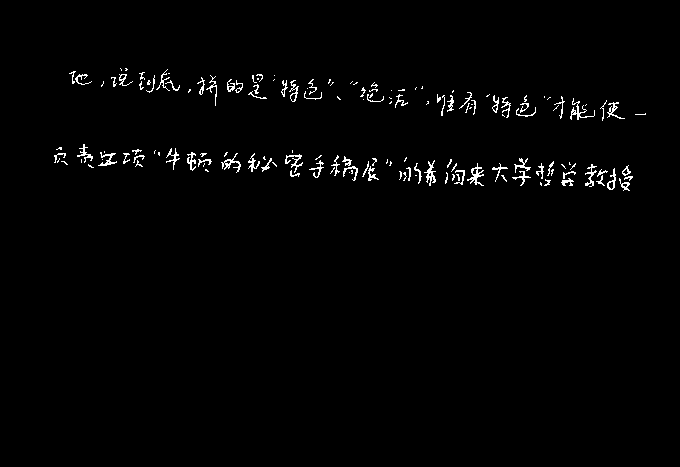 地,说到底,拼的是“特色”、“绝活”,唯有“特色”才能使一
负责这项“牛顿的秘密手稿展”的希伯来大学哲学教授